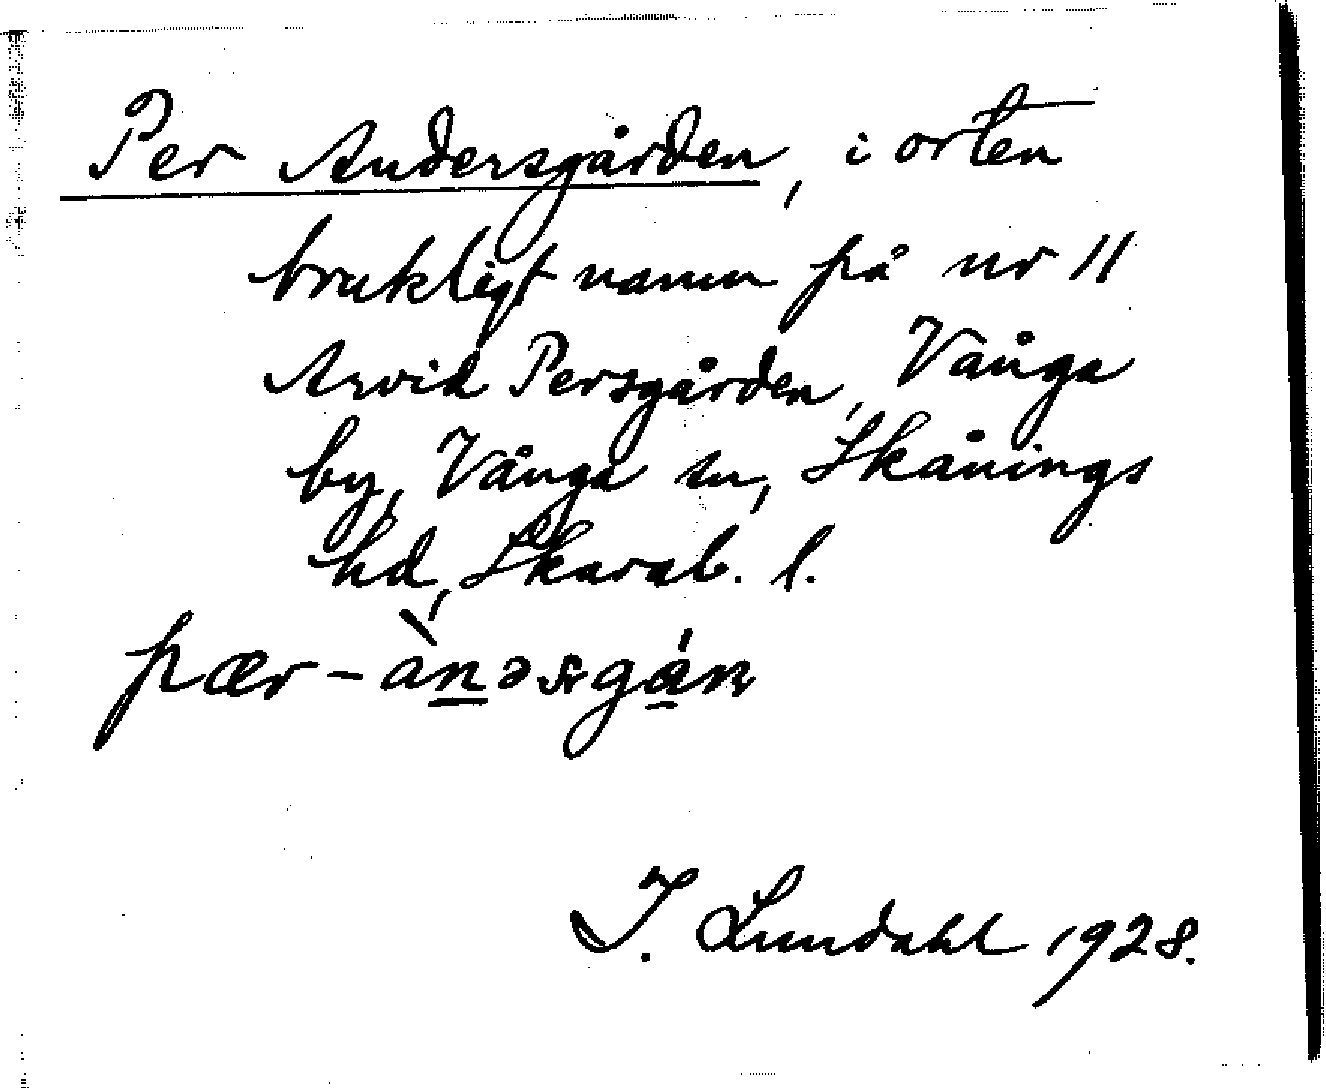 Per Andersgården, i orten
brukligt namn på nr 11
Arvid Persgården, Vånga
by, Vånga sn, Skånings
hd, Skarab. l.
pær-
I. Lundahl 1928.